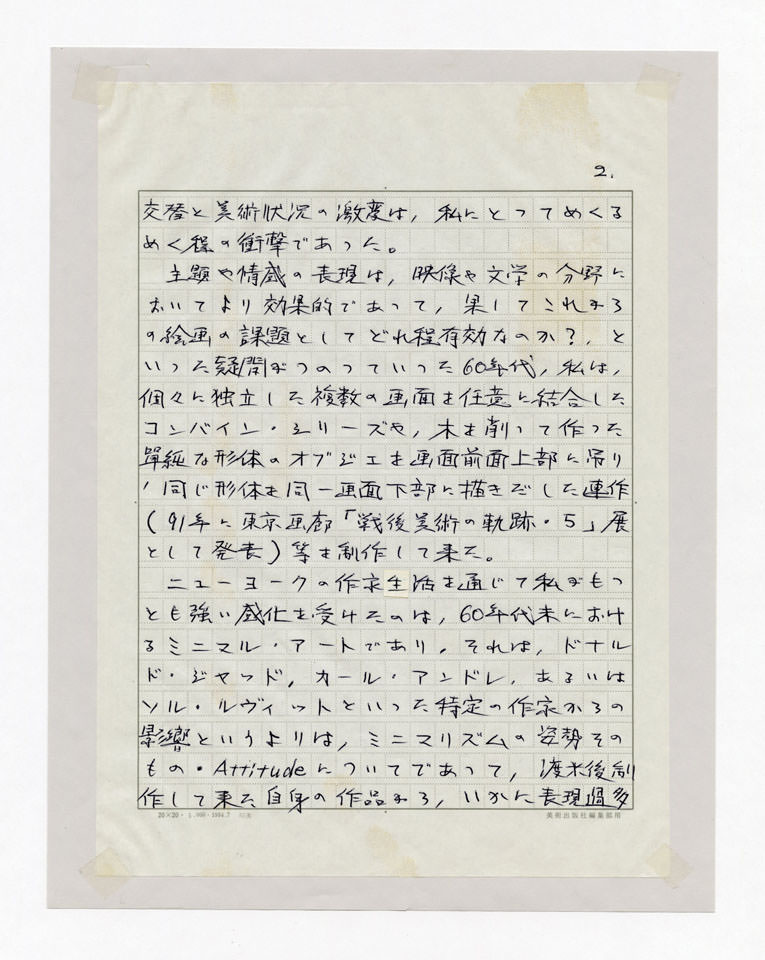 2.
交替と美術状況の激変は，私にとってめくる
めく程の衝撃であった。
主題や情感の表現は，映像や文学の分野に
おいてより効果的であって，果してこれから
の絵画の課題としてどれ程有効なのか？，と
いった疑問がつのっていった60年代，私は，
個々に独立した複数の画面を任意に結合した
コンバイン・シリーズや，木を削って作った
単純な形体のオブジェを画面前面上部に吊り
，同じ形体を同一画面下部に描きだした連作
（91年に東京画廊「戦後美術の軌跡・5」展
として発表）等を制作して来た。
ニューヨークの作家生活を通じて私がもっ
とも強い感化を受けたのは，60年代末におけ
るミニマル・アートであり，それは，ドナル
ド・ジャッド，カール・アンドレ，あるいは
ソル・ルヴィットといった特定の作家からの
影響というよりは，ミニマリズムの姿勢その
もの・Attitudeについてであって，渡米後制
作して来た自身の作品から，いかに表現過多
20×20・1,000・1984.7
美術出版社編集部用